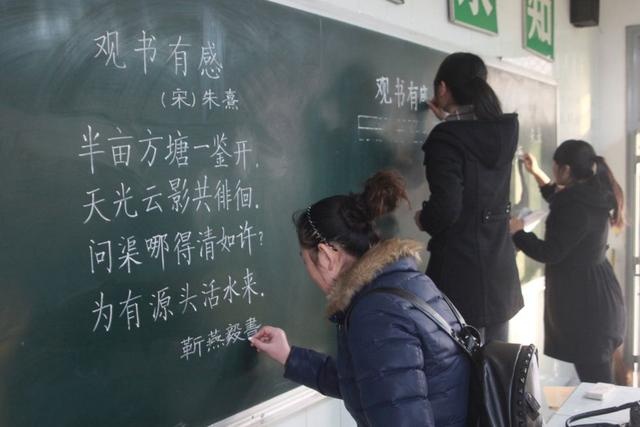 观书有感
(宋)朱熹
半亩方塘一鉴开,
天光云影共徘徊.
问渠哪得清如许?
为有源头活水来.
靳燕毅書
观书有
知